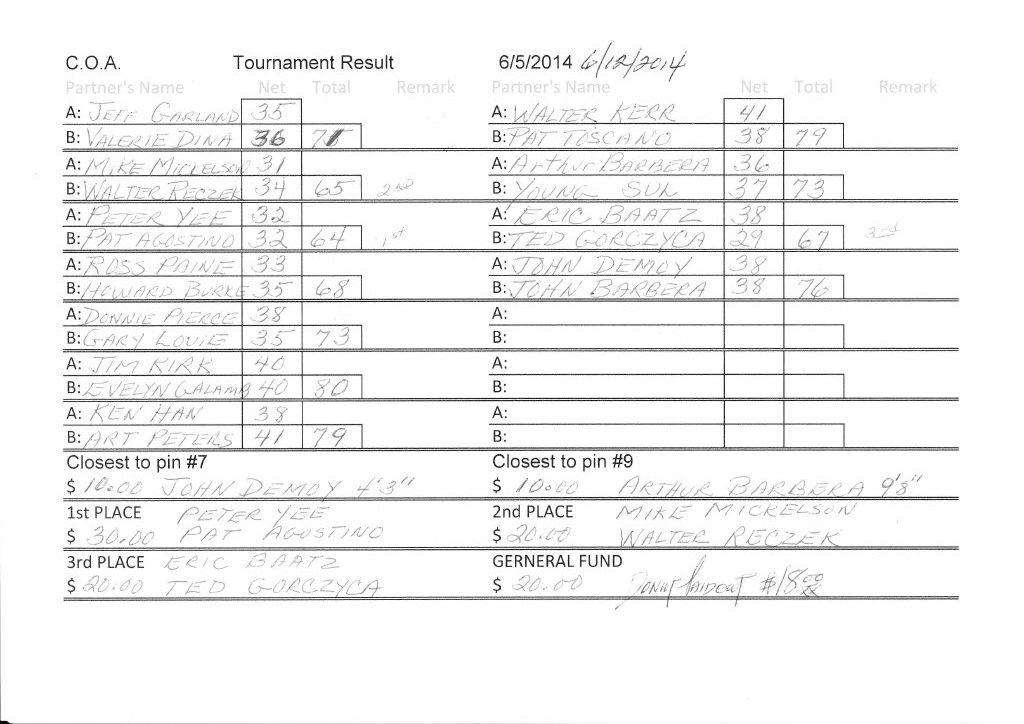 C.O.A. Tournament Result 6/5/2014 6/12/2014
Partner's Name Net Total Remark Partner's Name Net Total Remark
A: JEFF GARLAND 35 A: WALTER KERR 41
B: VALERIE DINA 36 71 B: PAT TOSCANO 38 79
A: MIKE MICKELSON 31 A: Arthur BARBERA 36
B: WALTER RECZEK 34 65 2nd B: YOUNG SUK 37 73
A: PETER YEE 32 A: ERIC BAATZ 38
B: PAT AGOSTINO 32 64 1st B: TED GORCZYCA 29 67 3rd
A: ROSS PAINE 33 A: JOHN DEMOY 38
B: HOWARD BURKE 35 68 B: JOHN BARBERA 38 76
A: DONNIE PIERCE 38 A:
B: GARY LOUIE 35 73 B:
A: JIM KIRK 40 A:
B: EVELYN GALAMB 40 80 B:
A: KEN HAN 38 A:
B: ART PETERS 41 79 B:
Closest to pin #7 Closest to pin #9
$ 10.00 JOHN DEMOY 4'3" $ 10.00 ARTHUR BARBERA 9'8"
1st PLACE PETER YEE 2nd PLACE MIKE MICKELSON
$ 30.00 PAT AGOSTINO $ 20.00 WALTER RECZEK
3rd PLACE ERIC BAATZ GERNERAL FUND
$ 20.00 TED GORCZYCA $ 20.00 $18.00